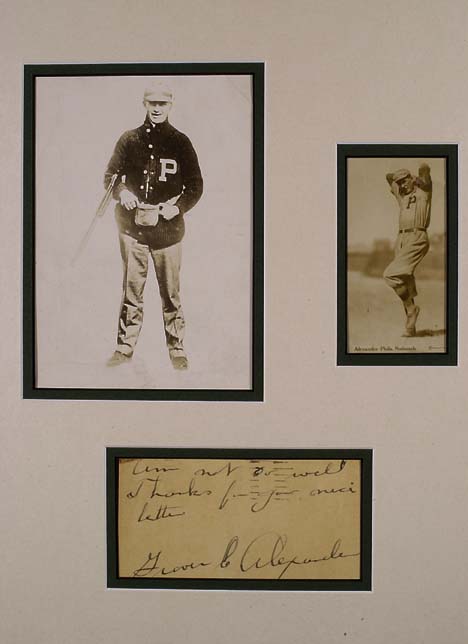 P
P
Alexander Phila. Nationals
am not so well
Thanks for your nice
letter
Grover C Alexander